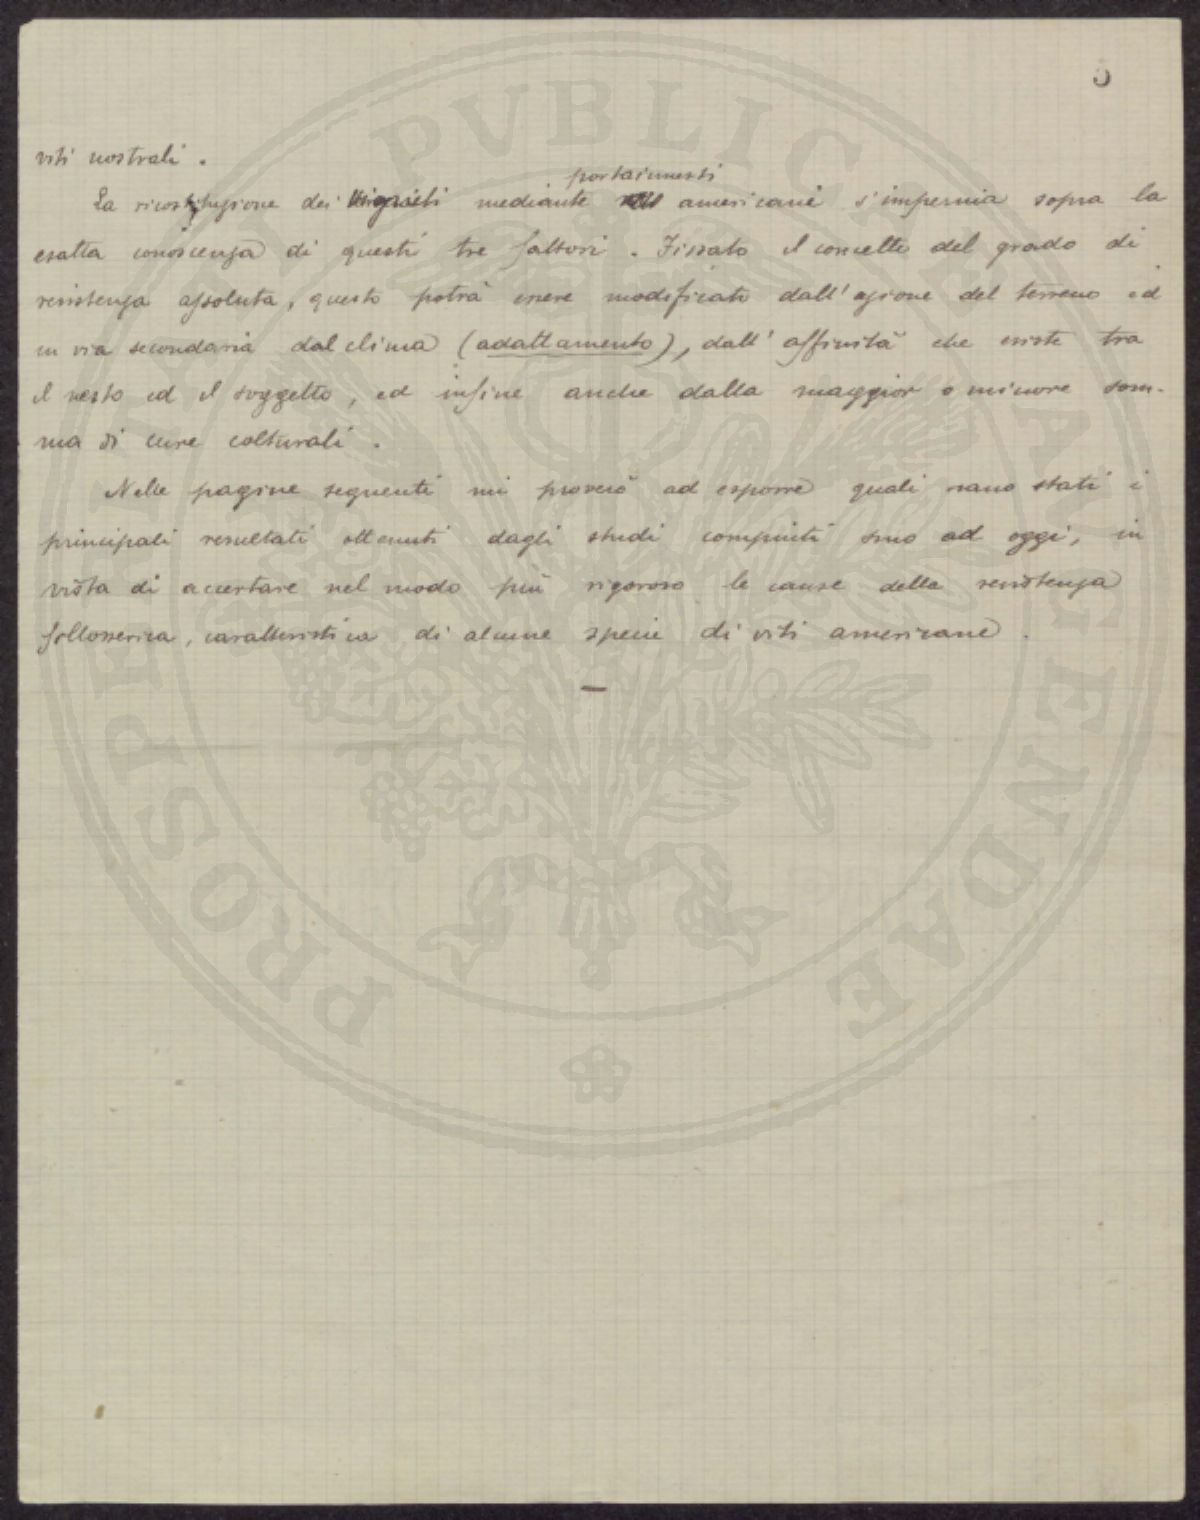 viti nostrali.
portainnesti
La ricostituzione dei vigneti mediante americani s'impernia sopra la
esatta conoscenza di questi tre fattori. Fissato il concetto del grado di
resistenza assoluta, questo potrà essere modificato dall'azione del terreno ed
in via secondaria dal clima (adattamento), dall'affinità che esiste tra
il nesto ed il soggetto, ed infine anche dalla maggior o minore som-
ma di cure colturali.
Nelle pagine seguenti mi proverò ad esporre quali siano stati i
principali resultati ottenuti dagli studi compiuti sino ad oggi, in
vista di accertare nel modo più rigoroso le cause della resistenza
fillosserica, caratteristica di alcune specie di viti americane.
PROSPERITATI PUBLICAE AUGENDAE